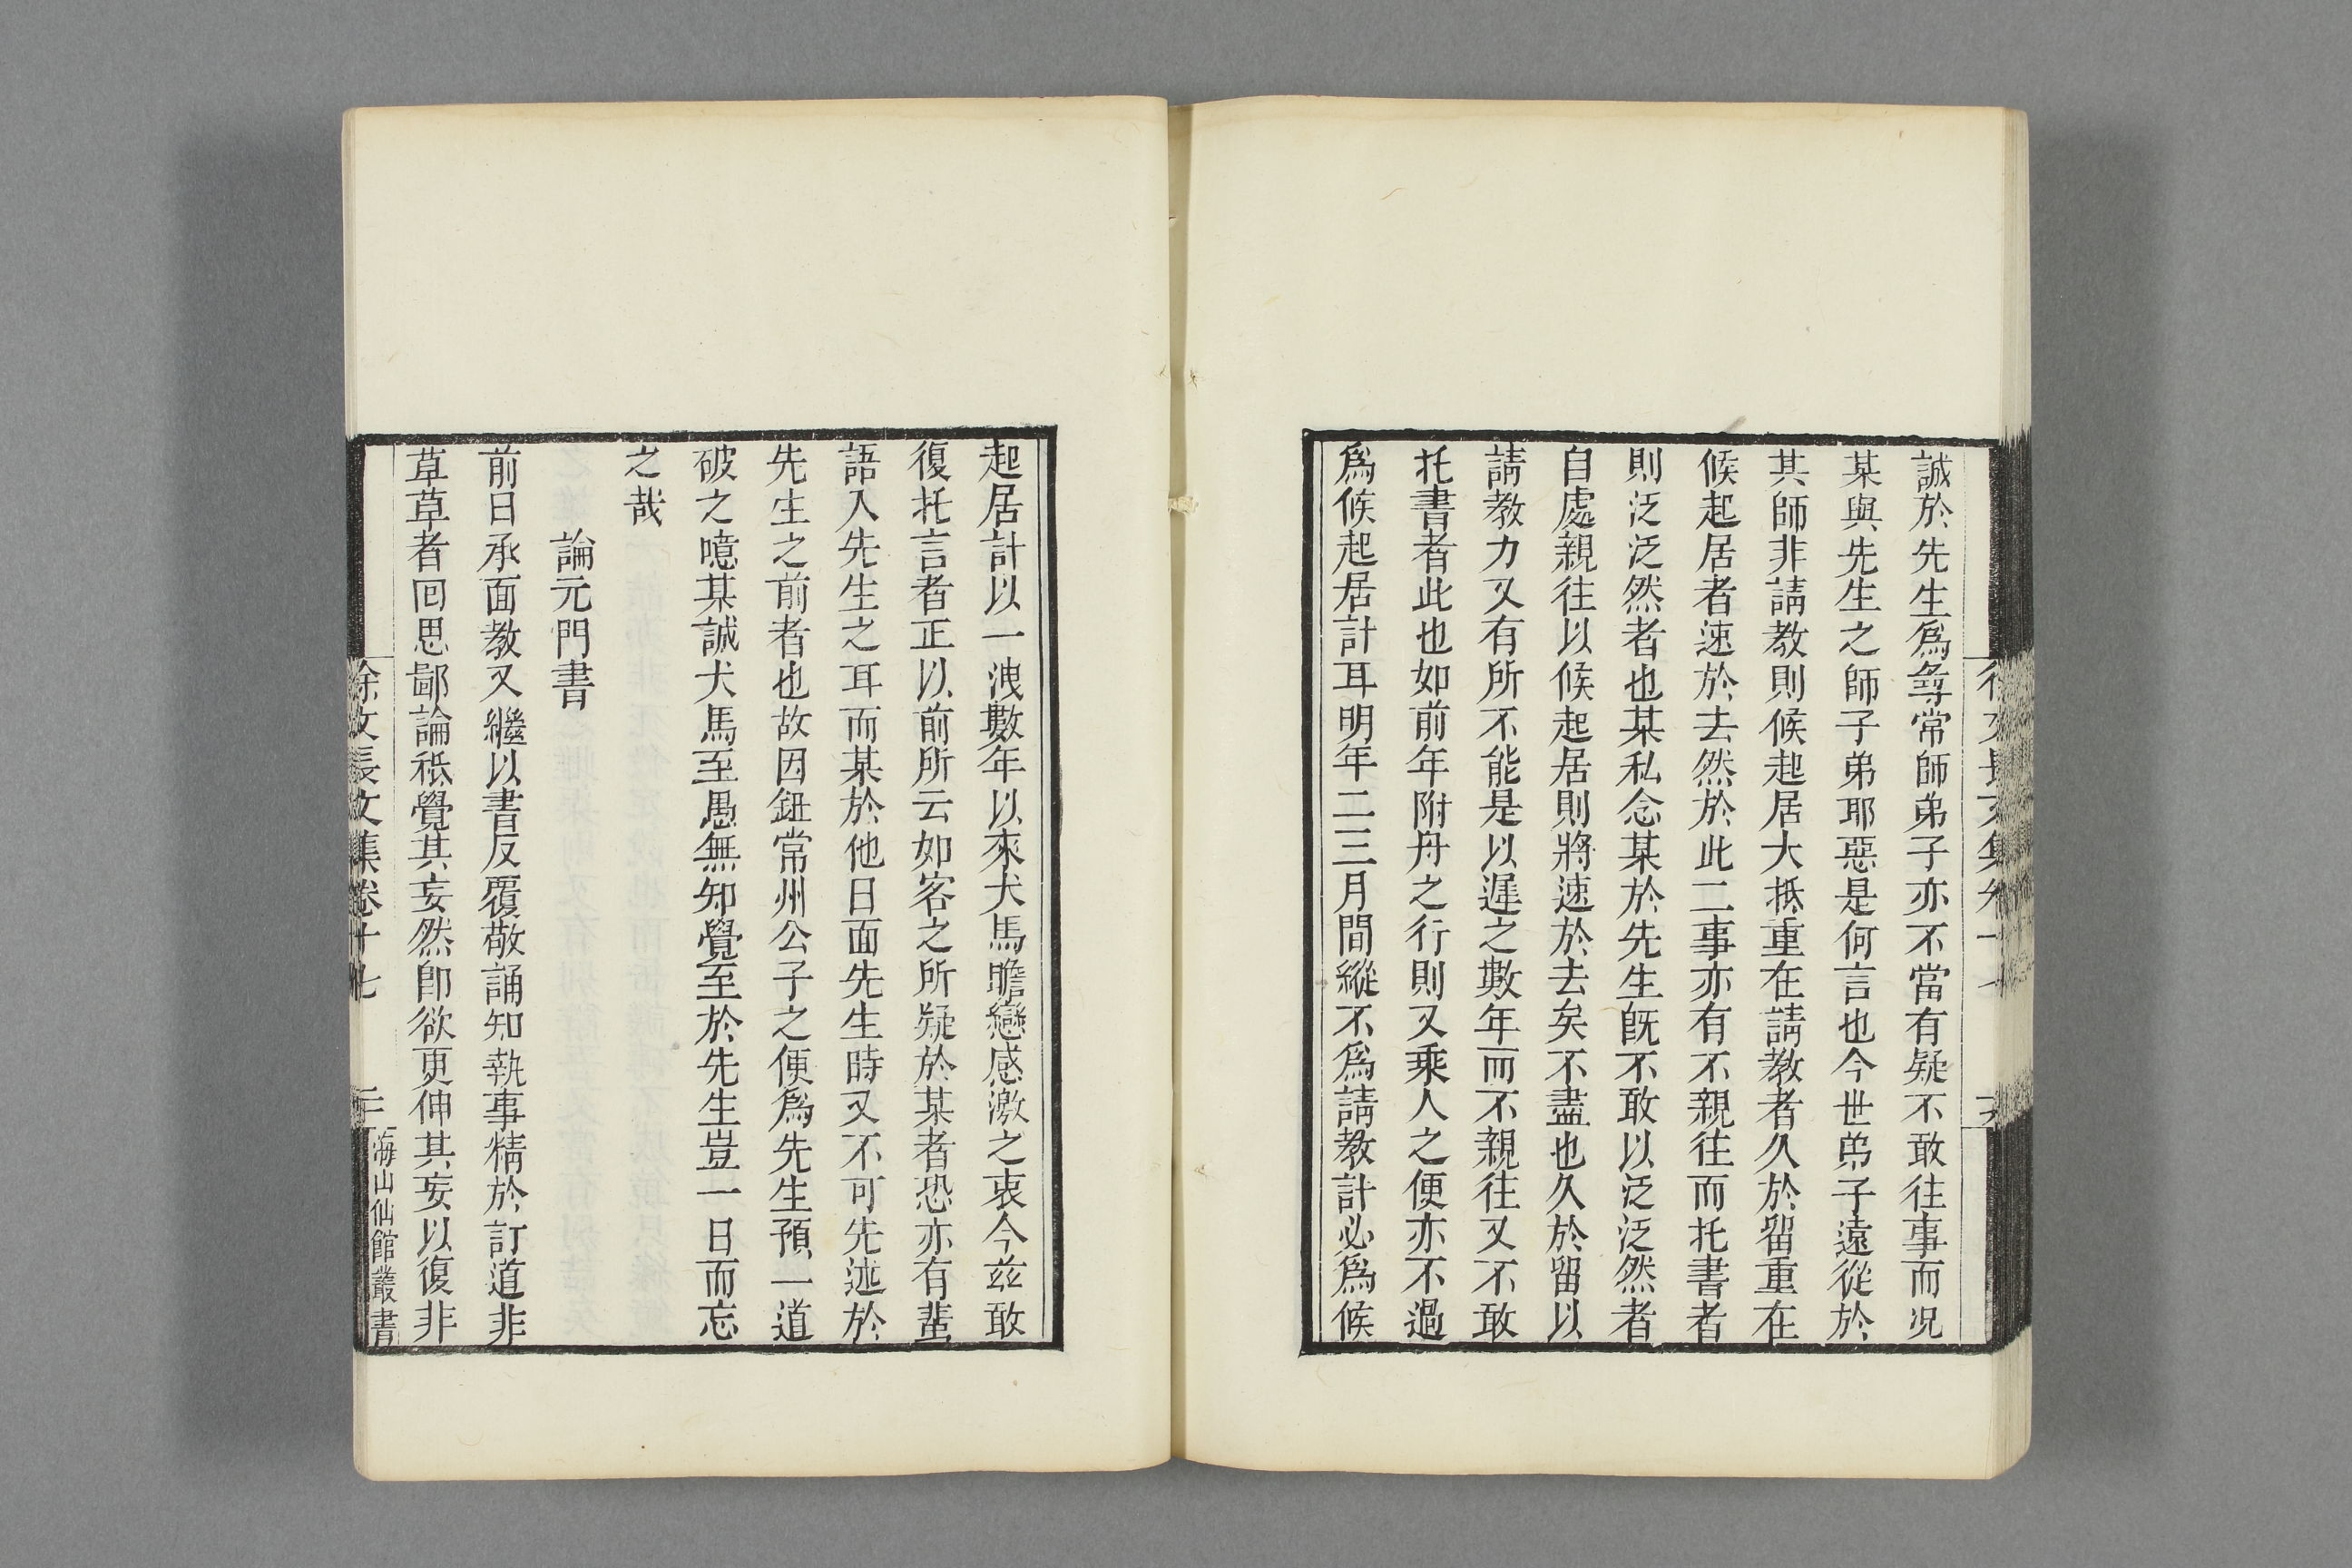 誠於先生爲尋常師弟子亦不當有疑不敢往事而况
某與先生之師子弟耶惡是何言也今世弟子遠從於
其師非請教則候起居大抵重在請教者久於留重在
候起居者速於去然於此二事亦有不親往而托書者
則泛泛然者也某私念某於先生旣不敢以泛泛然者
自處親往以候起居則將速於去矣不盡也久於留以
請教力又有所不能是以遲之數年而不親往又不敢
托書者此也如前年附舟之行則又乘人之便亦不過
爲候起居計耳明年二三月間縱不爲請教計必爲候
起居計以一洩數年以來犬馬瞻戀感激之衷今茲敢
復托言者正以前所云如客之所疑於某者恐亦有蜚
語入先生之耳而某於他日面先生時又不可先述於
先生之前者也故因鈕常州公子之便爲先生預一道
破之噫某誠犬馬至愚無知覺至於先生豈一日而忘
之哉
論元門書
前日承面教又繼以書反覆敬誦知執事精於訂道非
草草者回思鄙論秪覺其妄然卽欲更伸其妄以復非
徐文長文集卷十七
三
海山仙館叢書